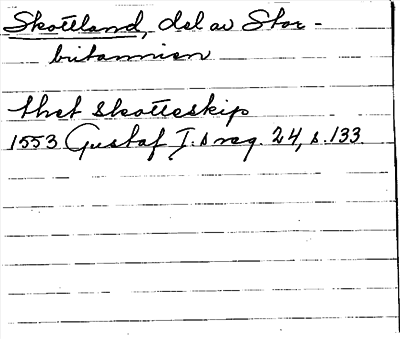 Skottland, del av Stor-
britannien
thet skotteskip
1553 Gustaf I.s reg. 24, s. 133.